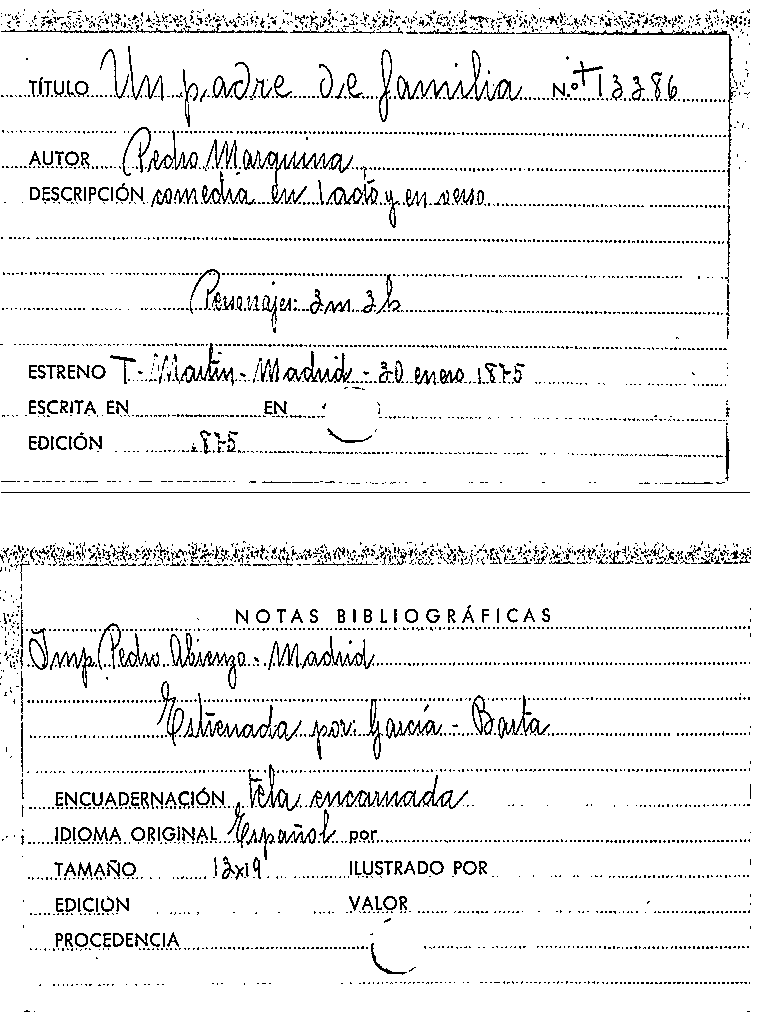 TÍTULO Un padre de familia N.º T 13386
AUTOR Pedro Marquina
DESCRIPCIÓN comedia en 1 acto y en verso
Personajes: 3m 3h
ESTRENO T. Martin - Madrid - 30 enero 1875
ESCRITA EN EN
EDICIÓN 1875
NOTAS BIBLIOGRÁFICAS
Imp. Pedro Abienzo - Madrid
Estrenada por: García - Basta
ENCUADERNACIÓN tela encarnada
IDIOMA ORIGINAL Español por
TAMAÑO 13x19 ILUSTRADO POR
EDICIÓN VALOR
PROCEDENCIA